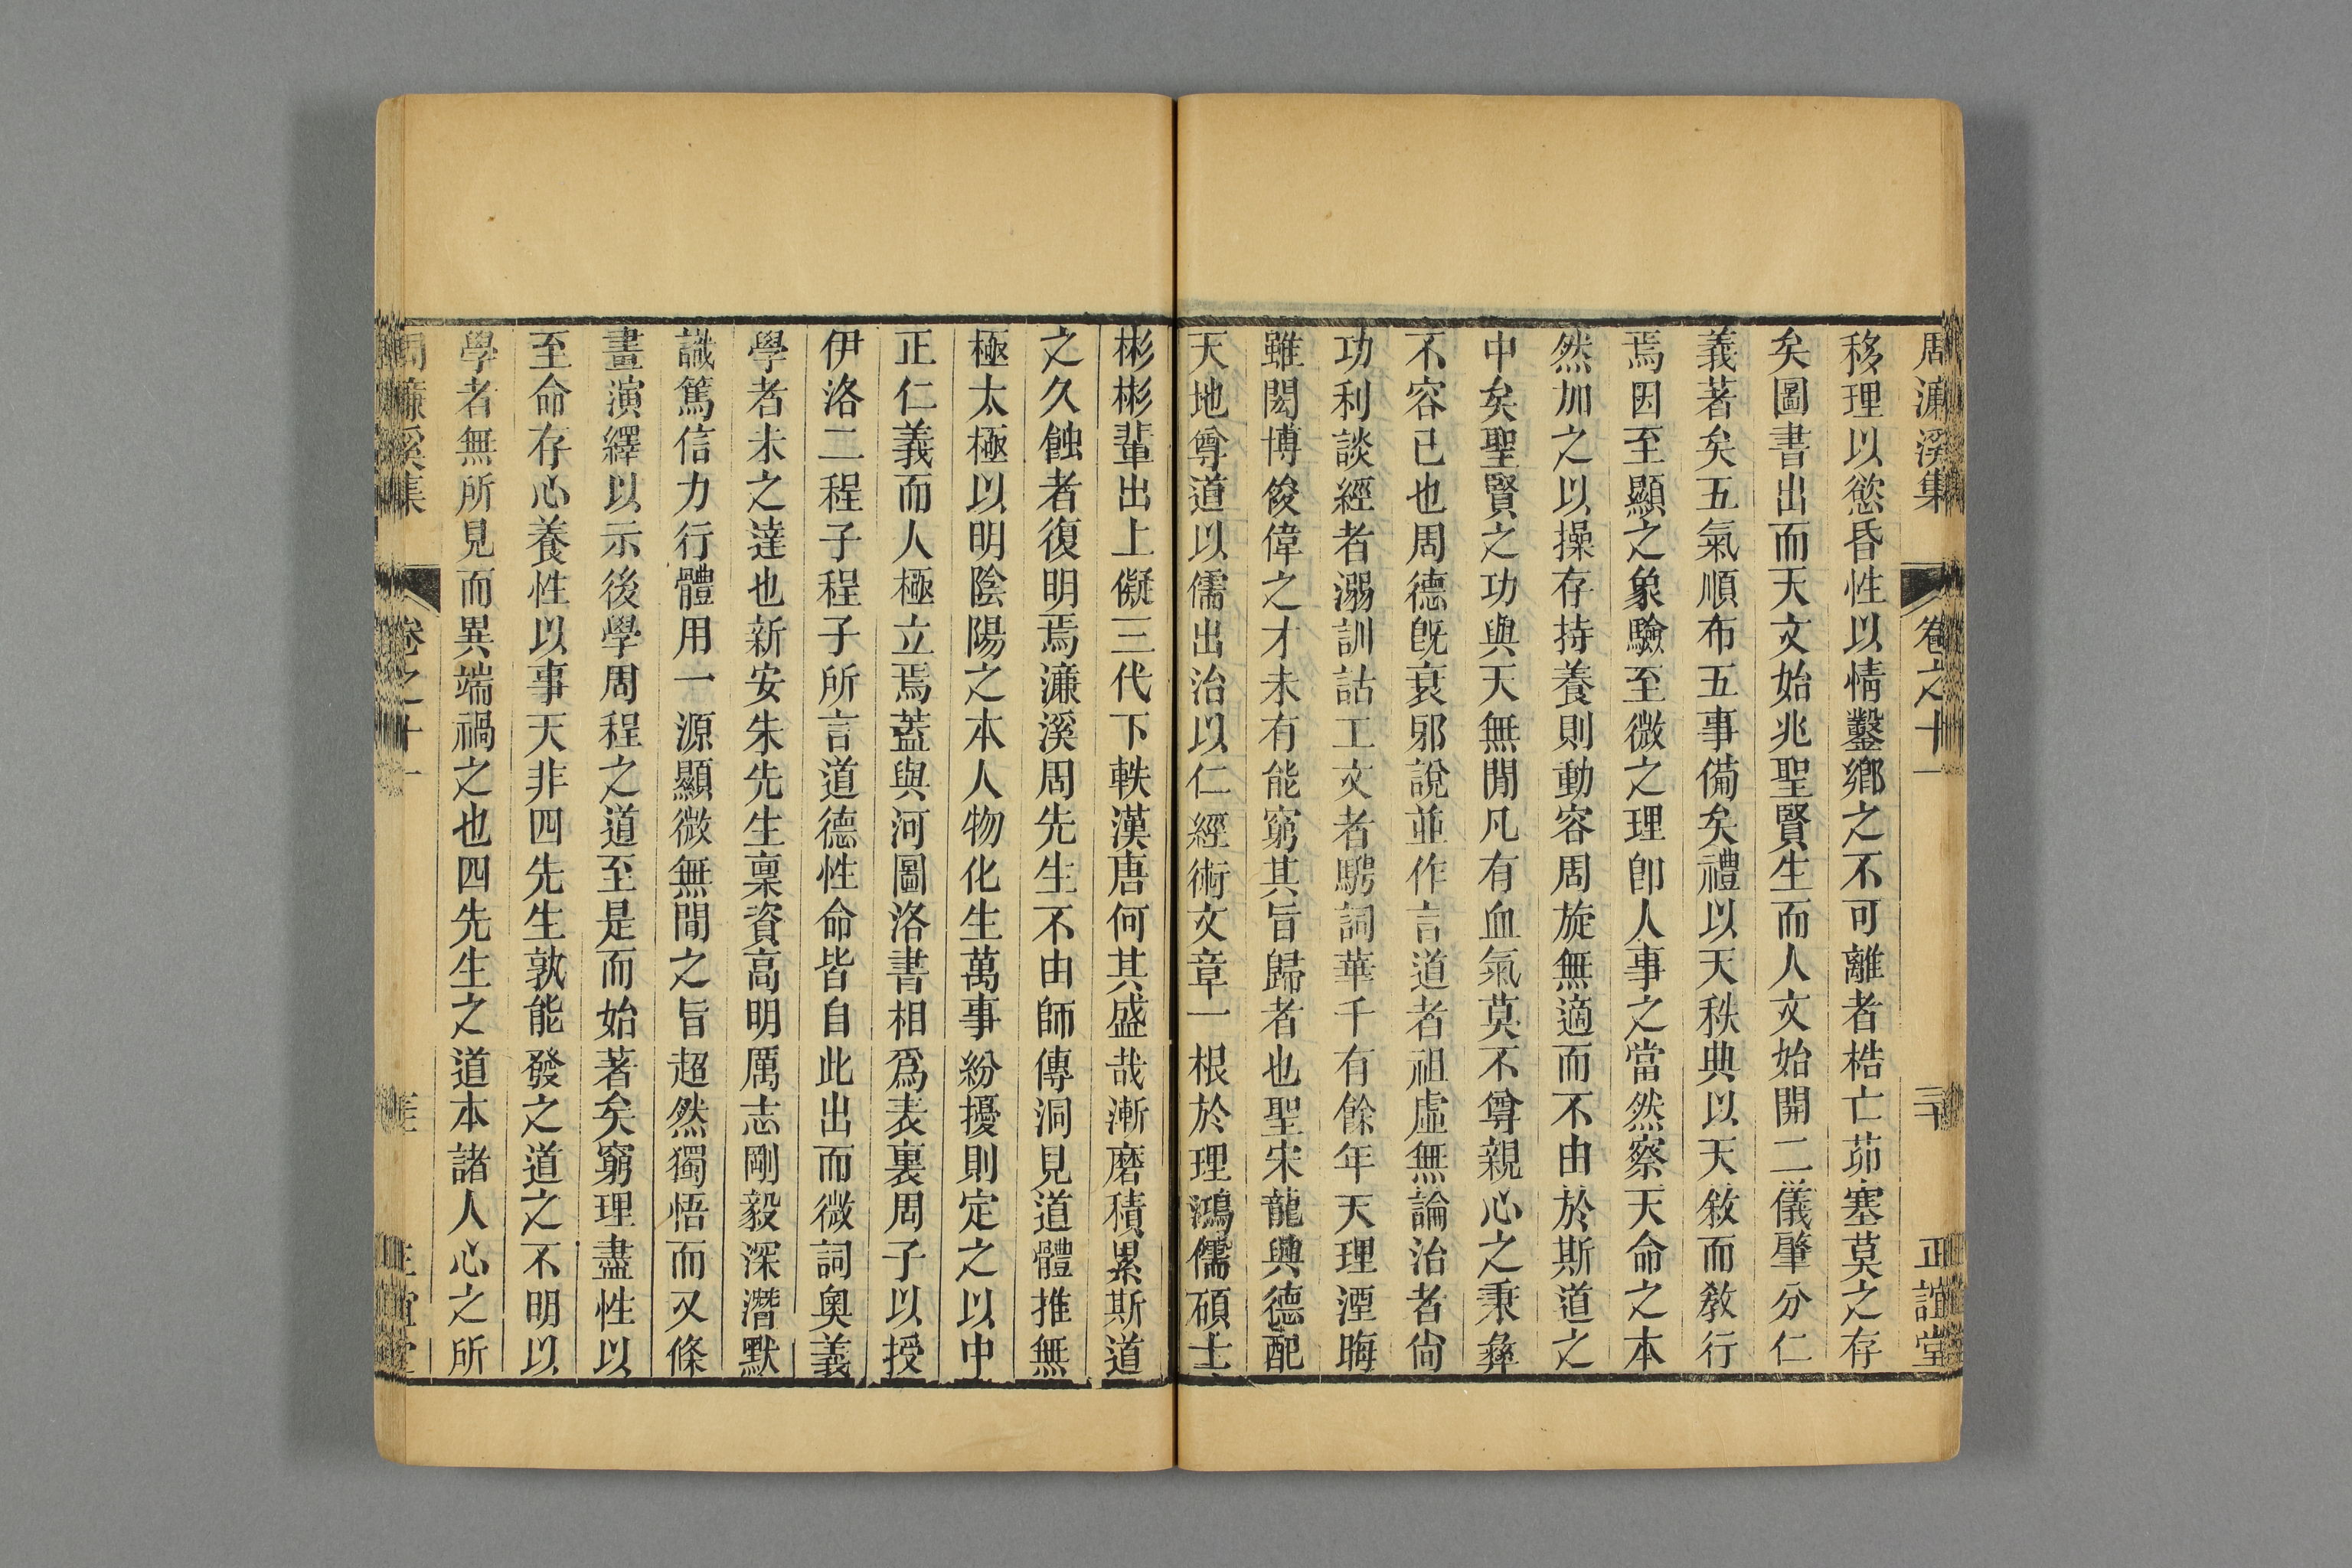 周濂溪集 卷之十一 二十 正誼堂
移理以慾昏性以情鑿鄉之不可離者梏亡茆塞莫之存
矣圖書出而天文始兆聖賢生而人文始開二儀肇分仁
義著矣五氣順布五事備矣禮以天秩典以天敘而敎行
焉因至顯之象驗至微之理卽人事之當然察天命之本
然加之以操存持養則動容周旋無適而不由於斯道之
中矣聖賢之功與天無閒凡有血氣莫不尊親心之秉彝
不容已也周德旣衰邪說並作言道者祖虛無論治者尙
功利談經者溺訓詁工文者騁詞華千有餘年天理湮晦
雖閎博俊偉之才未有能窮其旨歸者也聖宋龍興德配
天地尊道以儒出治以仁經術文章一根於理鴻儒碩士
彬彬輩出上儗三代下軼漢唐何其盛哉漸磨積累斯道
之久蝕者復明焉濂溪周先生不由師傳洞見道體推無
極太極以明陰陽之本人物化生萬事紛擾則定之以中
正仁義而人極立焉蓋與河圖洛書相爲表裏周子以授
伊洛二程子程子所言道德性命皆自此出而微詞奧義
學者未之達也新安朱先生稟資高明厲志剛毅深潛默
識篤信力行體用一源顯微無閒之旨超然獨悟而又條
畫演繹以示後學周程之道至是而始著矣窮理盡性以
至命存心養性以事天非四先生孰能發之道之不明以
學者無所見而異端禍之也四先生之道本諸人心之所
周濂溪集 卷之十一 正誼堂